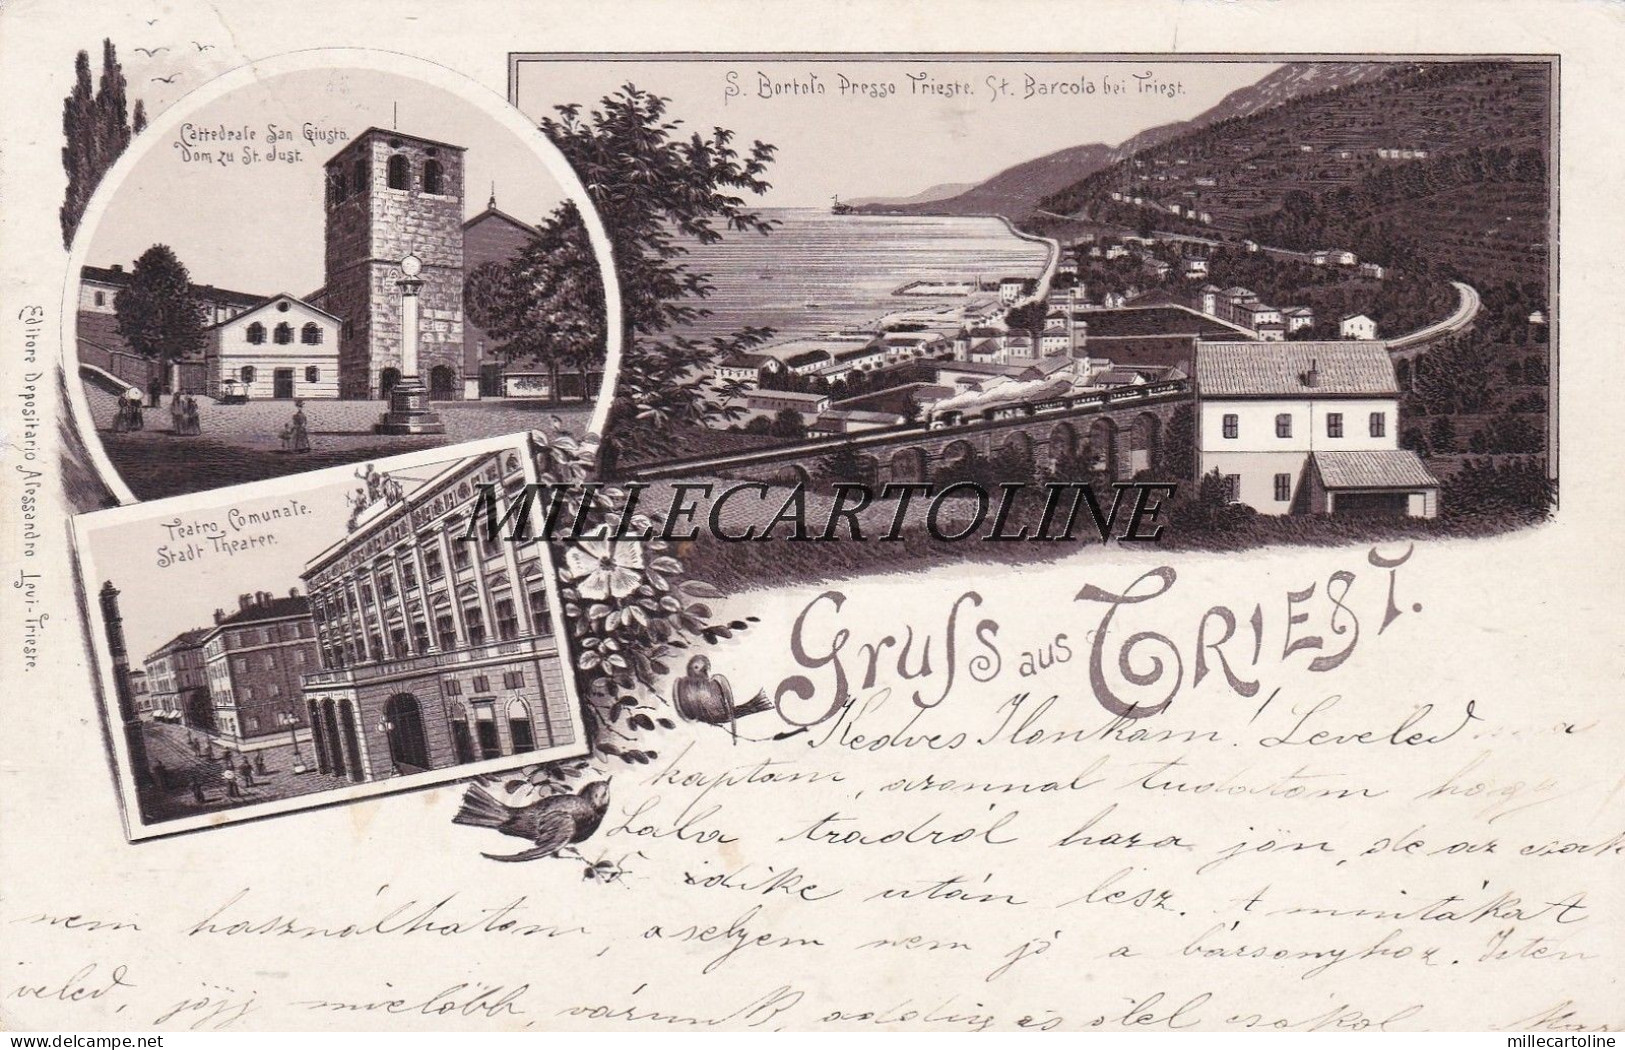 S. Bortolo Presso Trieste. St. Barcola bei Triest.
Cattedrale San Giusto.
Dom zu St. Just.
Teatro Comunale.
Stadt Theater.
Editore Depositario Alessandro Levi-Trieste.
MILLECARTOLINE
Gruss aus TRIEST.
Kedves Ilonkám! Leveled ma
kaptam, azonnal tudatom hogy
Lala tradról haza jön, de az csak
5-idike után lesz. A mintákat
nem használhatom, a selyem nem jó a bársonyhoz. Isten
veled, jöjj mielőbb, várunk, addig is ölel csókol
millecartoline
delcampe.net